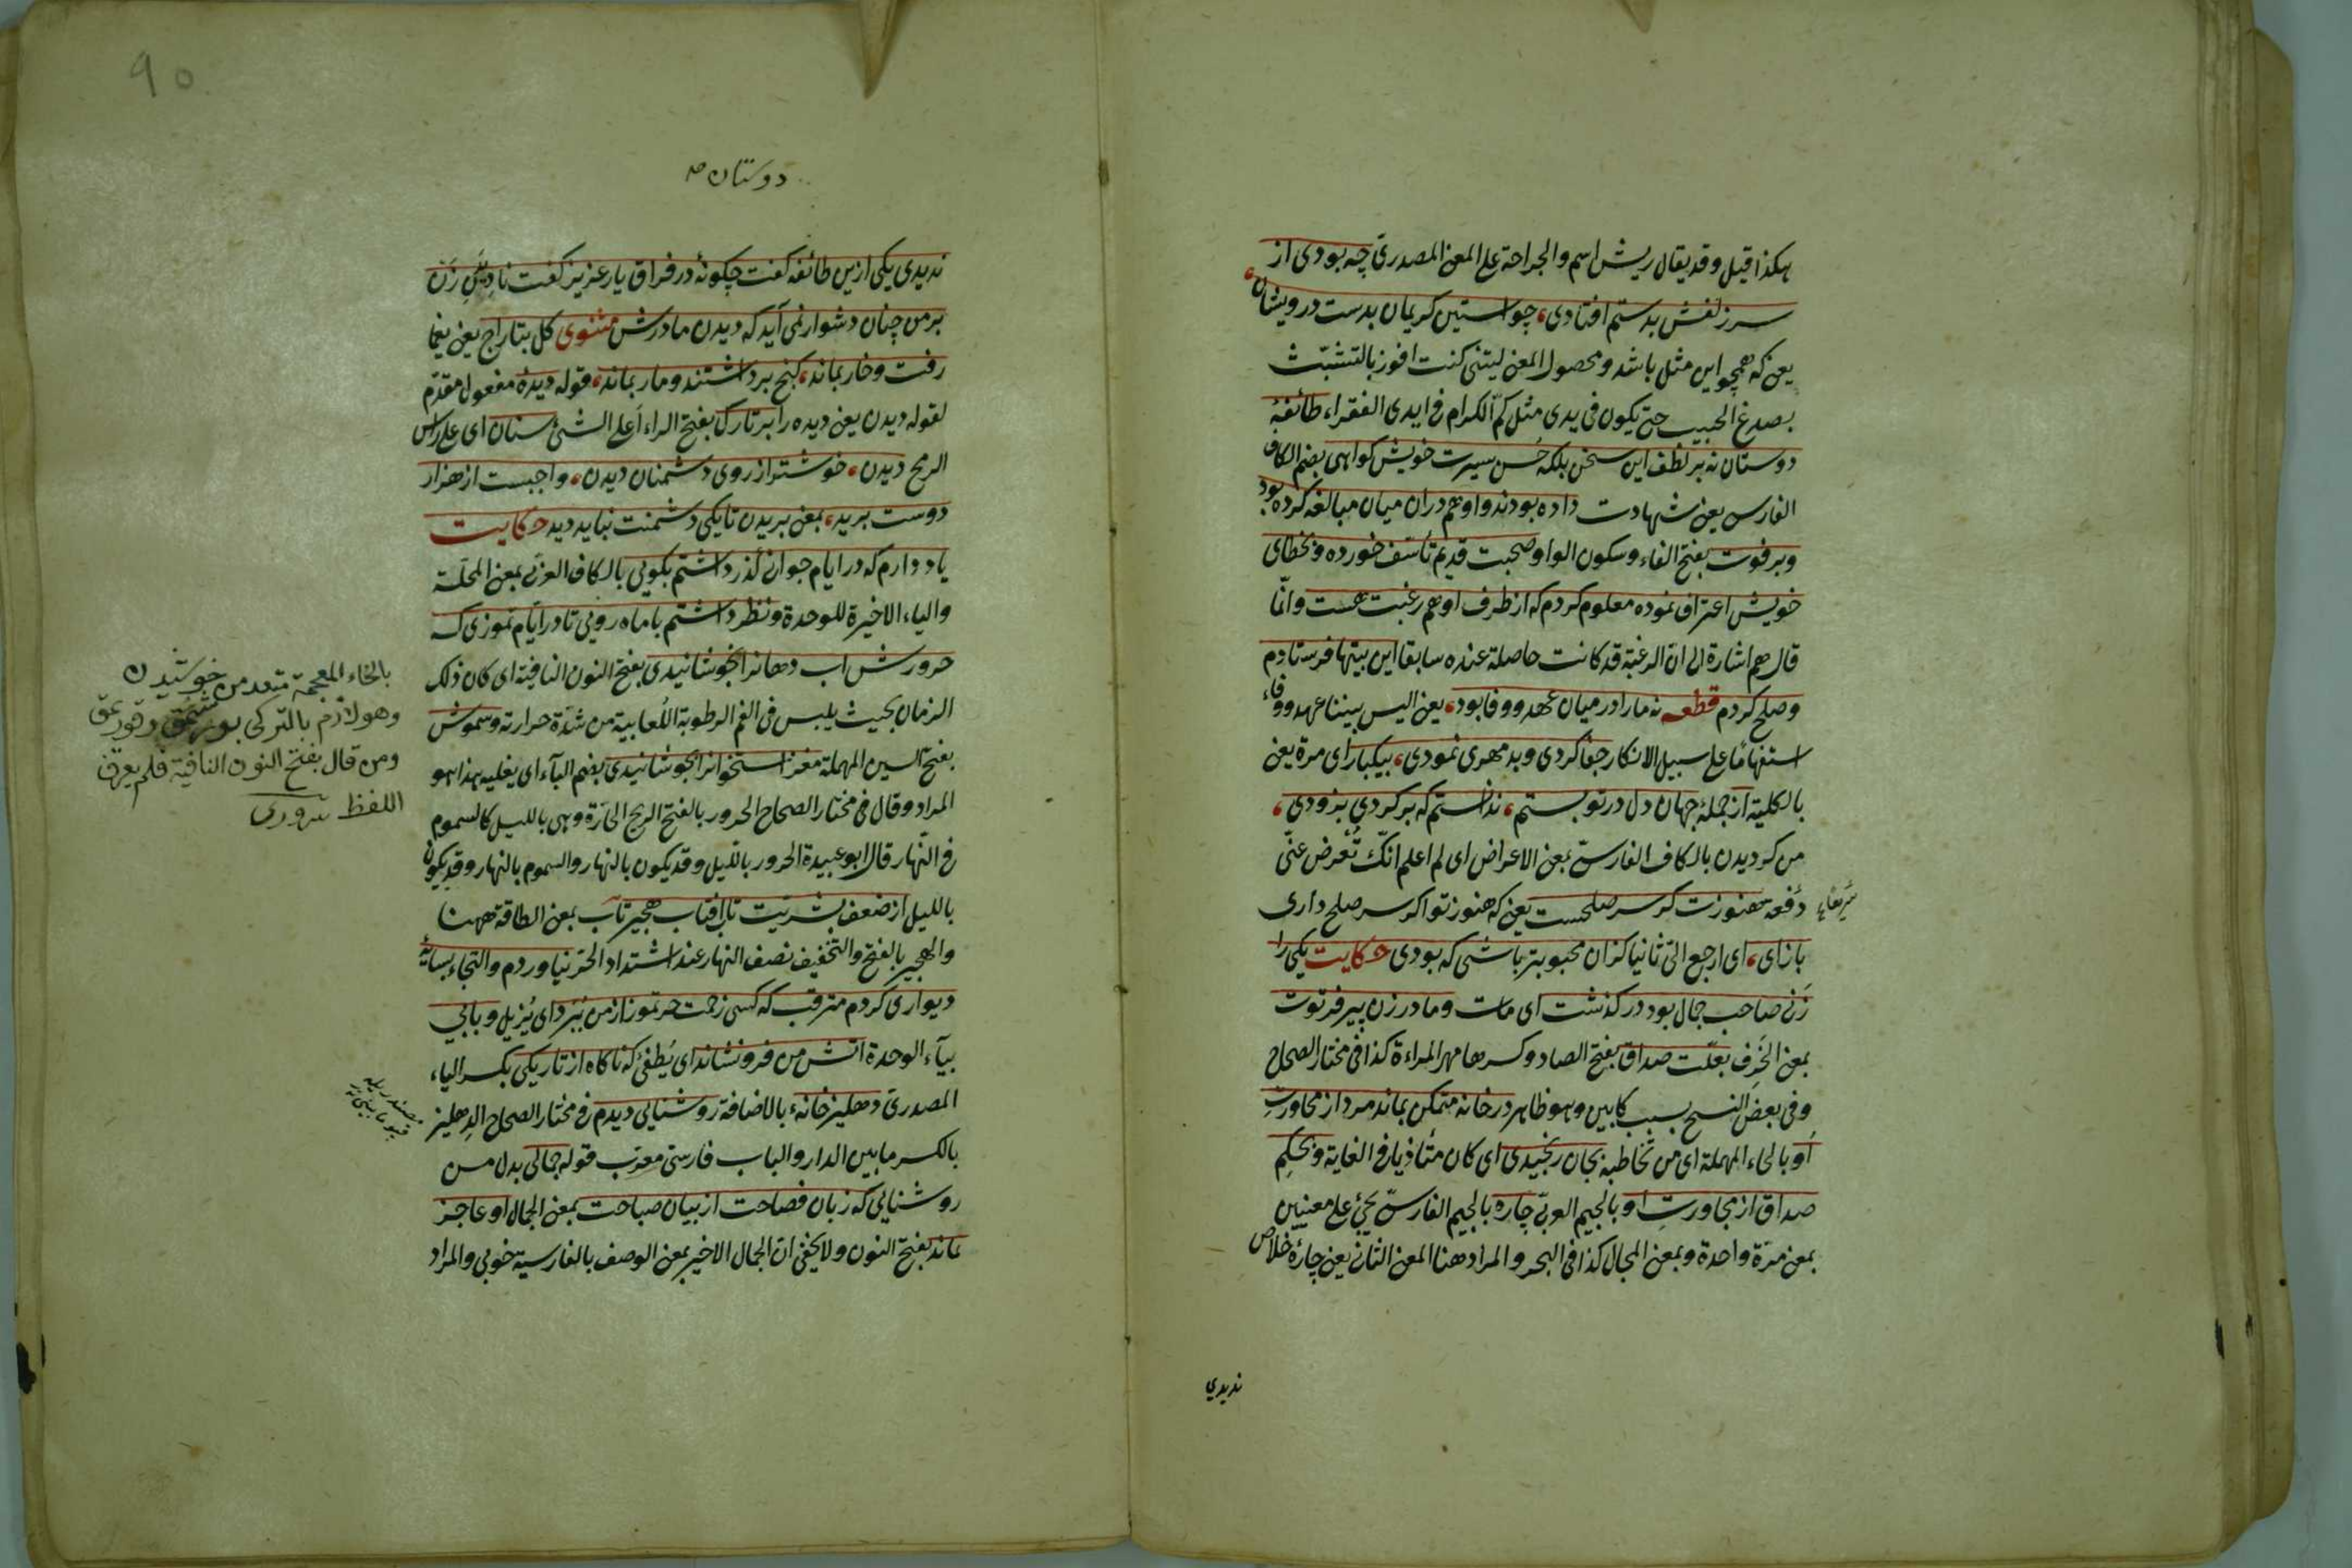 هكذا قيل وقد يقال ريش اسم والجراحة على المعنى المصدرى چه بودى از
سر زلفش بدستم افتادى، چو استين كريمان بدست درويشان،
يعنى كه همچو اين مثل باشد ومحصول المعنى ليتنى كنت افوز بالتشبّث
بصدغ الحبيب حتى يكون فى يدى مثل كمّ الكرام فى ايدى الفقراء طائفۀ
دوستان نه بر لطف اين سخن بلكه حُسن سيرت خويش كواهى بضم الكاف
الفارسى يعنى شهادت داده بودند واو هم دران ميان مبالغه كرده بود
وبر فوت بفتح الفاء وسكون الواو صحبت قديم تأسّف خورده وبخطاى
خويش اعتراف نموده معلوم كردم كه از طرف او هم رغبت هست وانّما
قال هم اشارة الى انّ الرغبة قد كانت حاصلة عنده سابقا اين بيتها فرستادم
وصلح كردم قطعه نه مارا در ميان عهد ووفا بود، يعنى اليس بيننا عهد ووفاء
استفهامًا على سبيل الانكار جفا كردى وبد مهرى نمودى، بيكبار اى مرة يعنى
بالكلية از جملۀ جهان دل در تو بستم، ندانستم كه بر كردى بزودى،
من كرديدن بالكاف الفارسىّ بمعنى الاعراض اى لم اعلم انّك تُعرض عنّى
دفعه هنوزت كر سر صلحست يعنى كه هنوز تو اكر سر صلح دارى
باز اى، اى ارجع الىّ ثانيا كزان محبوبتر باشى كه بودى حكايت يكى را
زنى صاحب جمال بود در كذشت اى مات ومادر زن پير فرتوت
بمعنى الخَرِف بعلّت صداق بفتح الصاد وكسرها مهر المراءة كذا فى مختار الصحاح
وفى بعض النسخ بسبب كابين وهو ظاهر در خانه متمكن بماند مرد از محاورتِ
او بالحاء المهملة اى من تخاطبه بجان رنجيدى اى كان متأذيا فى الغاية وبحكمِ
صداق از مجاورتِ او بالجيم العربىّ چاره بالجيم الفارسىّ يجئ على معنيين
بمعنى مرّة واحدة وبمعنى المجال كذا فى البحر والمراد هنا المعنى الثانى يعنى چارۀ خلاص
نديدي
دوستان
نديدى يكى ازين طائفه كفت چكونۀ در فراق يار عزيز كفت ناديدن زن
بر من چنان دشوار نمى آيد كه ديدن مادرش مثنوى كل بتاراج يعنى يغما
رفت وخار بماند، كنج برداشتند ومار بماند، قوله ديده مفعول مقدّم
لقوله ديدن يعنى ديده را بر تارك بفتح الراء أعلى الشئ سنان اى على راس
الرمح ديدن، خوشتر از روى دشمنان ديدن، واجبست از هزار
دوست بريد، بمعنى بريدن تا يكى دشمنت نبايد ديد حكايت
ياد دارم كه در ايام جوانى كذر داشتم بكويى بالكاف العربى بمعنى المحلّة
والياء الاخيرة للوحدة ونظر داشتم با ماه رويى تا در ايّام تموزى كه
حرورش اب دهانرا بخوشانيدى بفتح النون النافية اى كان ذلك
الزمان بحيث يلبس فى الفم الرطوبة اللّعابية من شدّة حرارته وسمومش
بفتح السين المهملة مغز استخوانرا بجوشانيدى بضم الباء اى يغليه هذا هو
المراد وقال فى مختار الصحاح الحرور بالفتح الريح الحارّة وهى بالليل كالسموم
فى النّهار قال ابو عبيدة الحرور بالليل وقد يكون بالنهار والسموم بالنهار وقد يكون
بالليل از ضعف بشريّت تاب افتاب هجير تاب بمعنى الطاقة ههنا
والهجير بالفتح والتخفيف نصف النهار عند اشتداد الحرّ نياوردم والتجاء بسايۀ
ديوارى كردم مترقب كه كسى زحمت حر تموز از من ببرد اى يُزيل وبابى
بياء الوحدة آتش من فرو نشاند اى يُطفئ كه ناكاه از تاريكى بكسر الياء
المصدرىّ دهليز خانه، بالاضافة روشنايى ديدم فى مختار الصحاح الدِهليز
بالكسر ما بين الدار والباب فارسىّ معرّب قوله جمالى بدل من
روشنايى كه زبان فصاحت از بيان صباحت بمعنى الجمال او عاجز
بماند بفتح النون ولا يخفى ان الجمال الاخير بمعنى الوصف بالفارسيه خوبى والمراد
بالخاء المعجمة متعد من خوشيدن
وهو لازم بالتركى
ومن قال بفتح النون النافية فلم يعرف
اللفظ سرورى